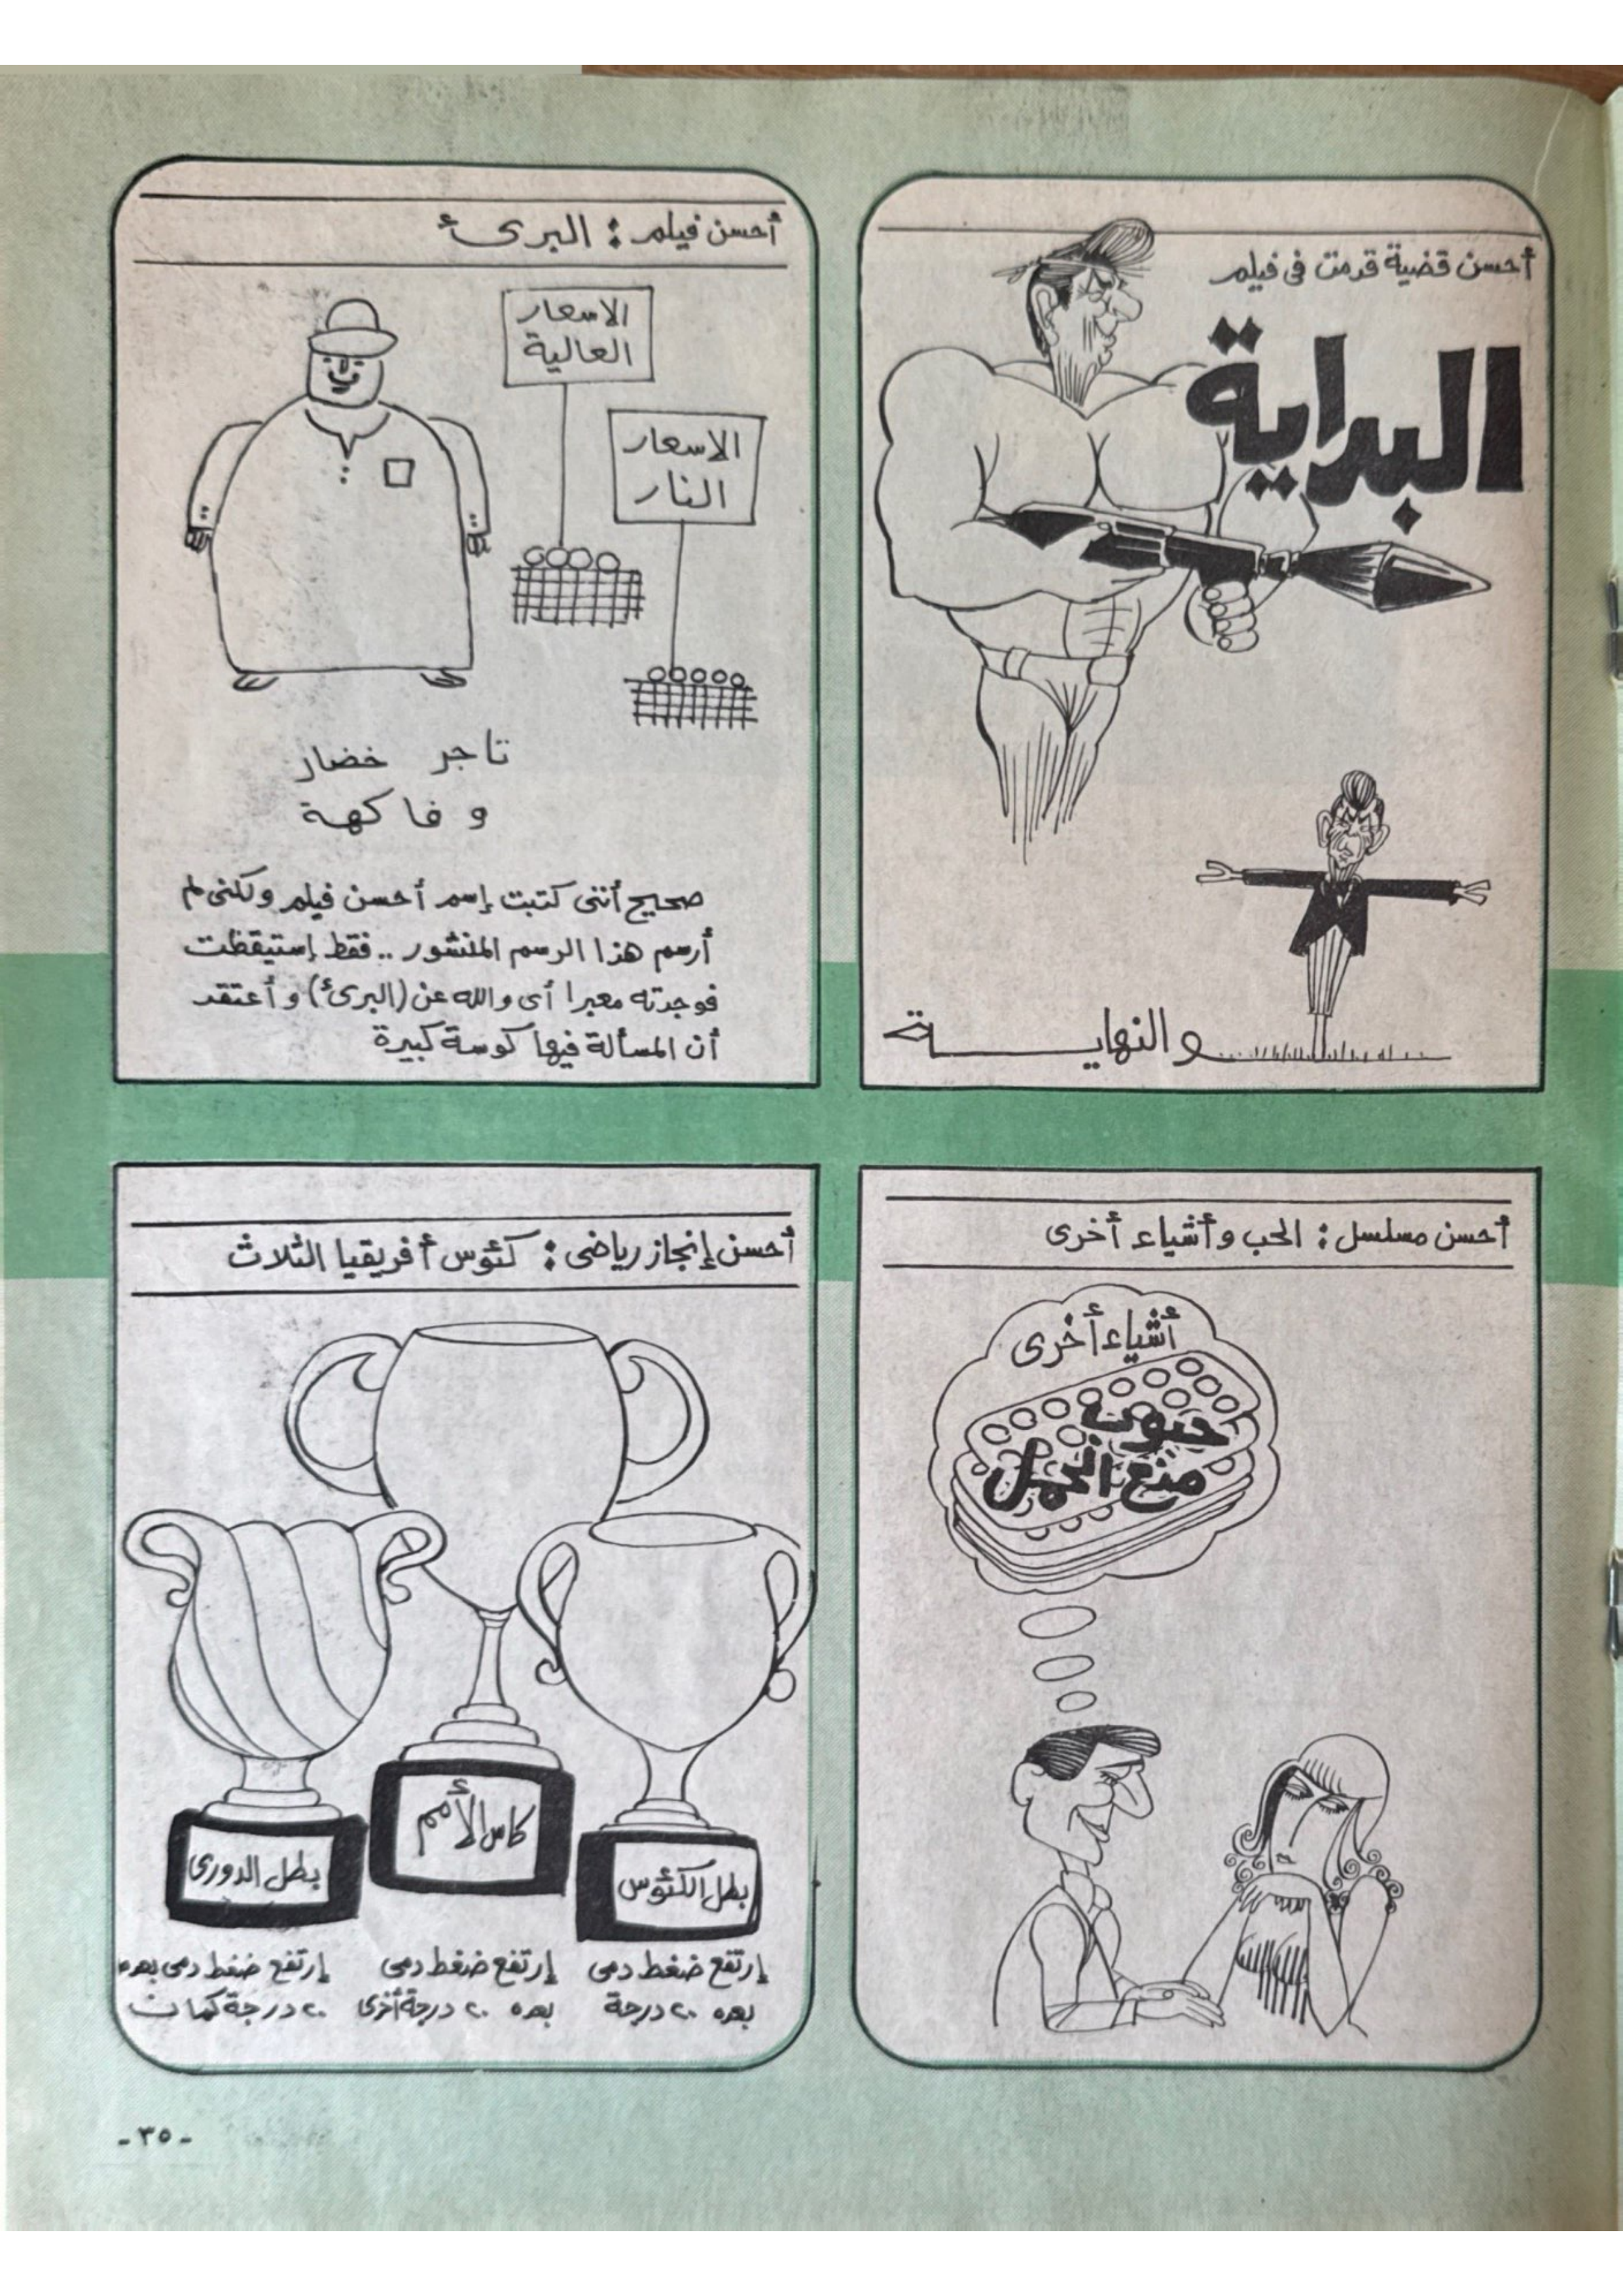 أحسن قضية قدمت فى فيلم
البداية
والنهايــــــة
أحسن فيلم : البرىء
الاسعار
العالية
الاسعار
النار
تاجر خضار
و فاكهة
صحيح أننى كتبت إسم أحسن فيلم ولكنى لم
أرسم هذا الرسم المنشور .. فقط إستيقظت
فوجدته معبرا أى والله عن (البرىء) وأعتقد
أن المسألة فيها كوسة كبيرة
أحسن مسلسل : الحب وأشياء أخرى
أشياء أخرى
حبوب
منع الحمل
أحسن إنجاز رياضى : كئوس أفريقيا الثلاث
كاس الأمم
بطل الكئوس
بطل الدورى
إرتفع ضغط دمى
بعده ٢٠ درجة
إرتفع ضغط دمى
بعده ٢٠ درجة أخرى
إرتفع ضغط دمى بعده
٢٠ درجة كمان
- ٣٥ -